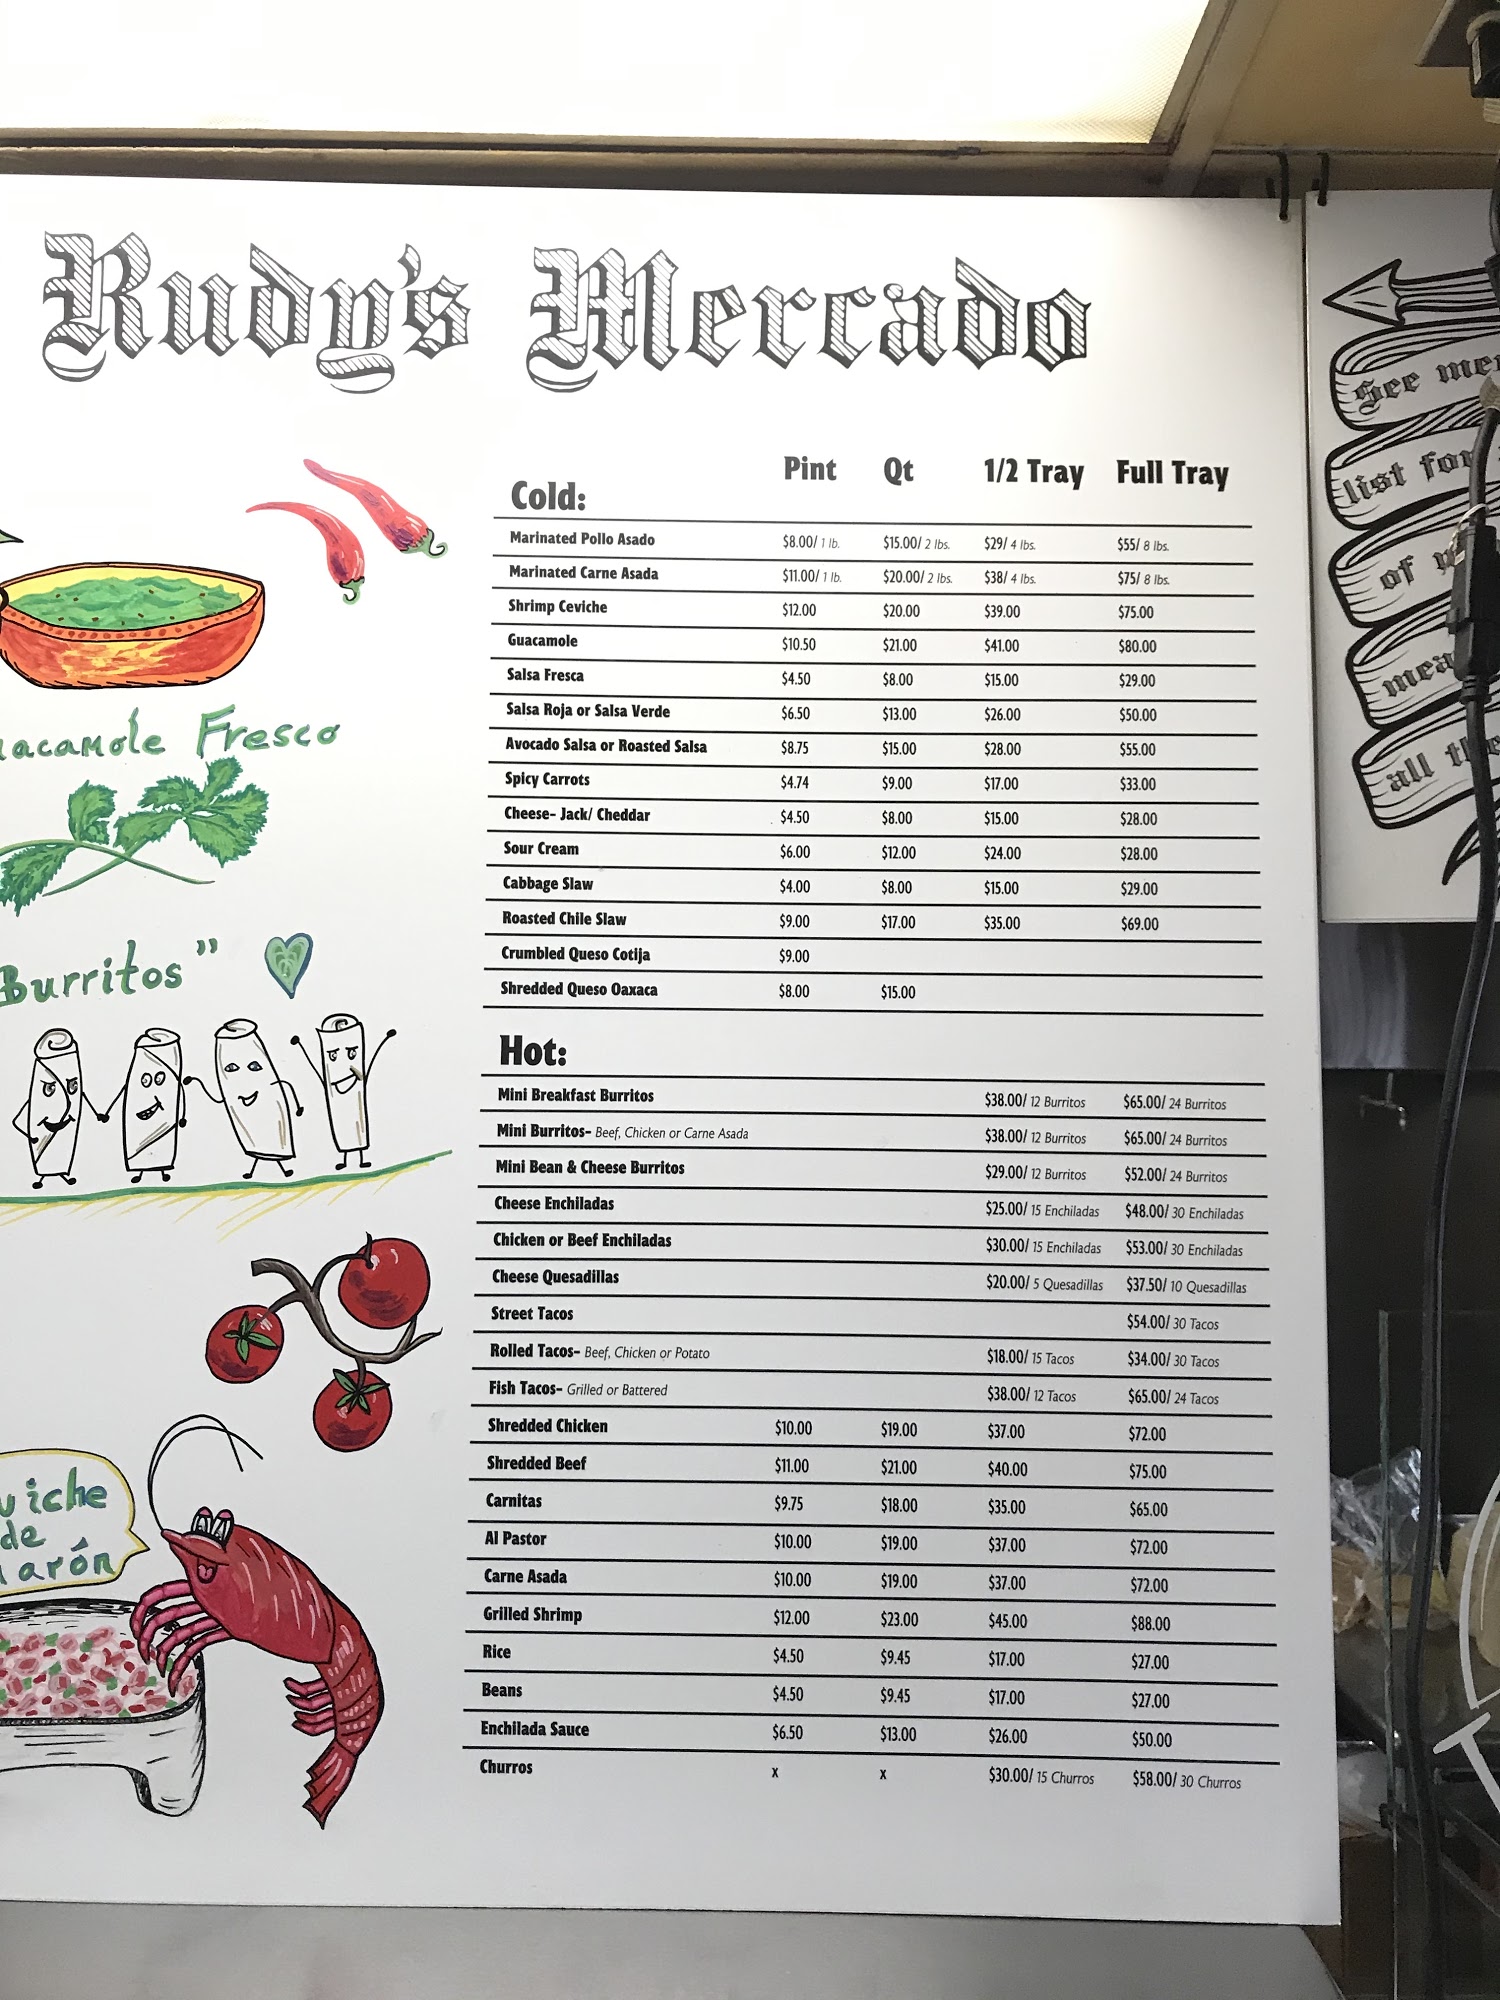 Rudy's Mercado
Pint Qt 1/2 Tray Full Tray
Cold:
Marinated Pollo Asado $8.00/ 1 lb. $15.00/ 2 lbs. $29/ 4 lbs. $55/ 8 lbs.
Marinated Carne Asada $11.00/ 1 lb. $20.00/ 2 lbs. $38/ 4 lbs. $75/ 8 lbs.
Shrimp Ceviche $12.00 $20.00 $39.00 $75.00
Guacamole $10.50 $21.00 $41.00 $80.00
Salsa Fresca $4.50 $8.00 $15.00 $29.00
Salsa Roja or Salsa Verde $6.50 $13.00 $26.00 $50.00
Avocado Salsa or Roasted Salsa $8.75 $15.00 $28.00 $55.00
Spicy Carrots $4.74 $9.00 $17.00 $33.00
Cheese- Jack/ Cheddar $4.50 $8.00 $15.00 $28.00
Sour Cream $6.00 $12.00 $24.00 $28.00
Cabbage Slaw $4.00 $8.00 $15.00 $29.00
Roasted Chile Slaw $9.00 $17.00 $35.00 $69.00
Crumbled Queso Cotija $9.00
Shredded Queso Oaxaca $8.00 $15.00
Hot:
Mini Breakfast Burritos $38.00/ 12 Burritos $65.00/ 24 Burritos
Mini Burritos- Beef, Chicken or Carne Asada $38.00/ 12 Burritos $65.00/ 24 Burritos
Mini Bean & Cheese Burritos $29.00/ 12 Burritos $52.00/ 24 Burritos
Cheese Enchiladas $25.00/ 15 Enchiladas $48.00/ 30 Enchiladas
Chicken or Beef Enchiladas $30.00/ 15 Enchiladas $53.00/ 30 Enchiladas
Cheese Quesadillas $20.00/ 5 Quesadillas $37.50/ 10 Quesadillas
Street Tacos $54.00/ 30 Tacos
Rolled Tacos- Beef, Chicken or Potato $18.00/ 15 Tacos $34.00/ 30 Tacos
Fish Tacos- Grilled or Battered $38.00/ 12 Tacos $65.00/ 24 Tacos
Shredded Chicken $10.00 $19.00 $37.00 $72.00
Shredded Beef $11.00 $21.00 $40.00 $75.00
Carnitas $9.75 $18.00 $35.00 $65.00
Al Pastor $10.00 $19.00 $37.00 $72.00
Carne Asada $10.00 $19.00 $37.00 $72.00
Grilled Shrimp $12.00 $23.00 $45.00 $88.00
Rice $4.50 $9.45 $17.00 $27.00
Beans $4.50 $9.45 $17.00 $27.00
Enchilada Sauce $6.50 $13.00 $26.00 $50.00
Churros x x $30.00/ 15 Churros $58.00/ 30 Churros
uacamole Fresco
Burritos"
viche
de
arón
See me
list for
of
mea
all th